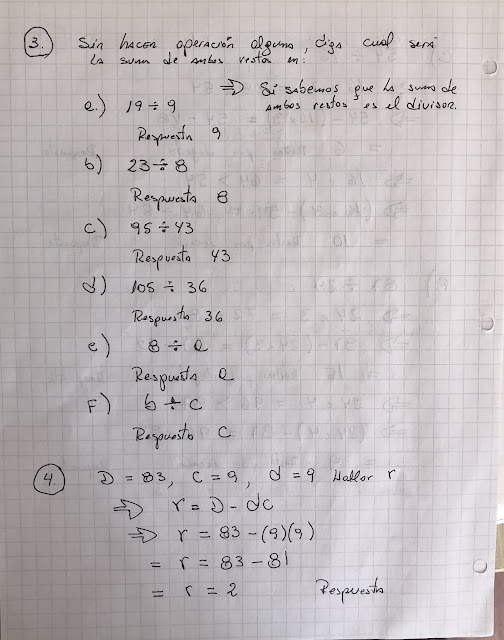 3. Sin hacer operación alguna, diga cual será
la suma de ambos restos en:
⇒ Si sabemos que la suma de
ambos restos es el divisor.
a.) 19 ÷ 9
Respuesta 9
b) 23 ÷ 8
Respuesta 8
c) 95 ÷ 43
Respuesta 43
d) 105 ÷ 36
Respuesta 36
e) 8 ÷ a
Respuesta a
F) b ÷ c
Respuesta c
4. D = 83, c = 9, d = 9 Hallar r
⇒ r = D - dc
⇒ r = 83 - (9)(9)
= r = 83 - 81
= r = 2 Respuesta